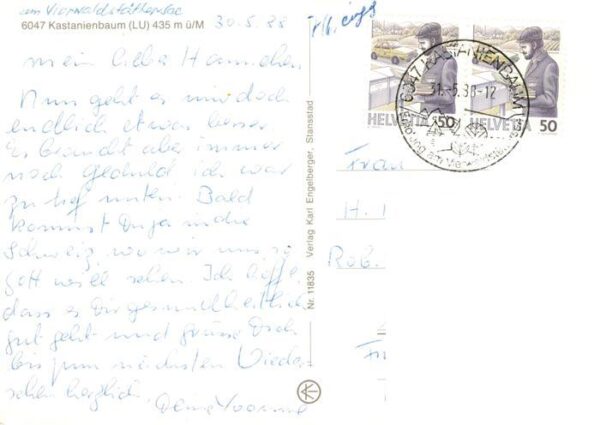 am Vierwaldstättersee
6047 Kastanienbaum (LU) 435 m ü/M
30.5.88
mein liebes Hannchen
Nun geht es mir doch
endlich etwas besser
Es braucht aber immer
noch geduld, ich war
zu tief unten. Bald
kommst Du ja in die
Schweiz, wo wir uns, so
Gott will sehen. Ich hoffe
dass es Dir gesundheitlich
gut geht und grüsse Dich
bis zum nächsten Wieder-
sehen herzlich,
Deine Yvonne
Nr. 11835 Verlag Karl Engelberger, Stansstad
HELVETIA 50
HELVETIA 50
6047 KASTANIENBAUM
31.-5.88-12
am Vierwaldstättersee
Frau
H.
Rob.